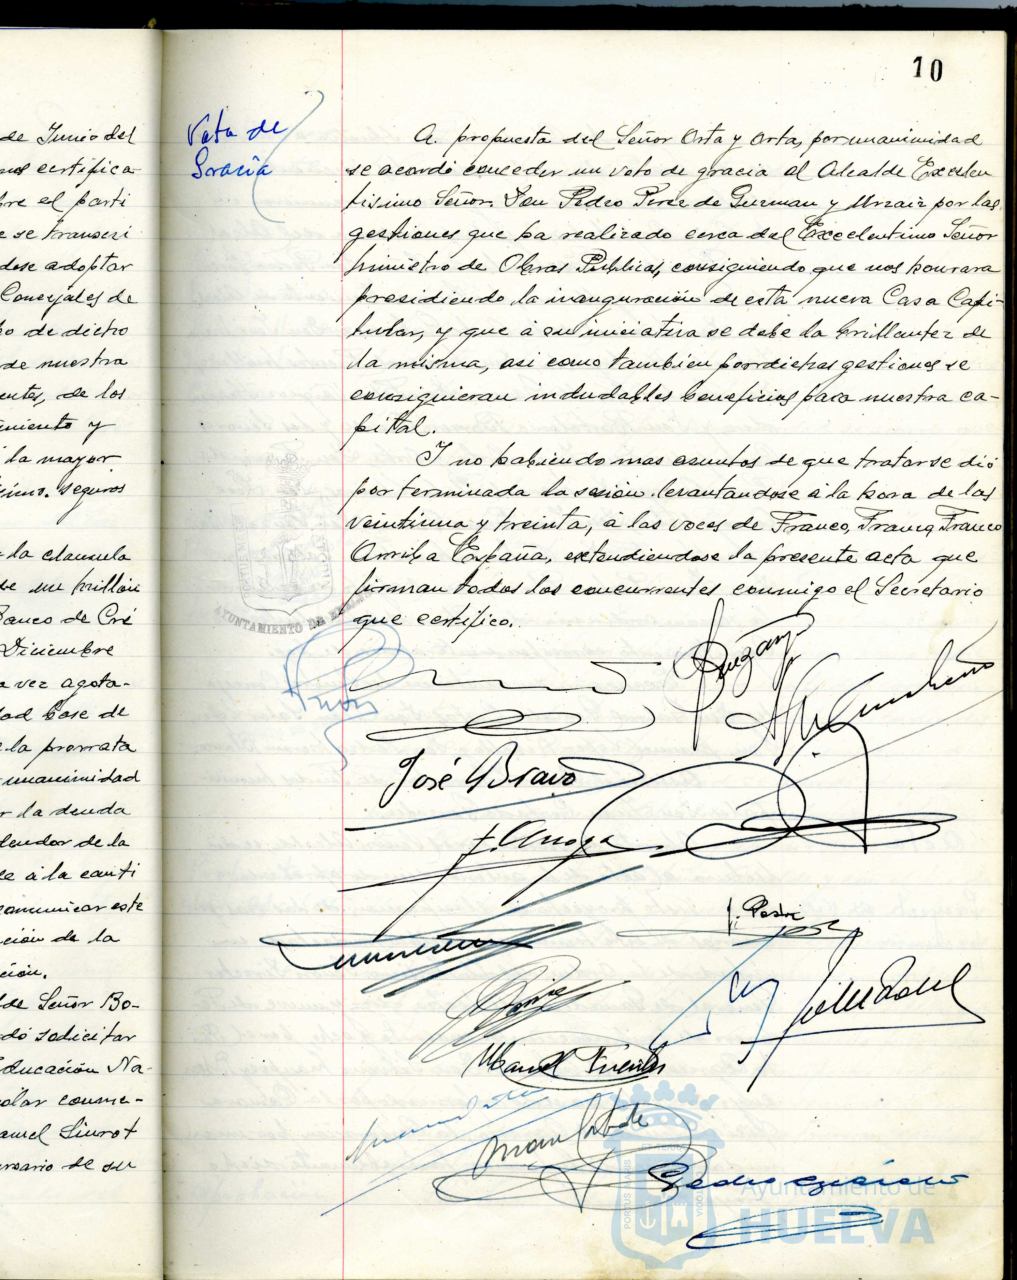 10
de Junio del
nos certifica
bre el parti
e se transcri
dose adoptar
Concejales de
po de dicho
de nuestra
entes, de los
amiento y
la mayor
simo. seguros
la clausula
de un millon
Banco de Cré
Diciembre
a vez agota-
dad base de
la prorrata
unanimidad
r la deuda
dendor de la
ce á la canti
comunicar este
ción de la
ción.
de Señor Bo-
dó solicitar
Educación Na-
olar conme-
anuel Siurot
ersario de su
Voto de
Gracia
A propuesta del Señor Orta y Orta, por unanimidad
se acordó conceder un voto de gracia al Alcalde Excelen
tisimo Señor Don Pedro Perez de Guzman y Urzaiz por las
gestiones que ha realizado cerca del Excelentimo Señor
Ministro de Obras Publicas, consiguiendo que nos honrara
presidiendo la inauguración de esta nueva Casa Capi-
tular, y que á su iniciativa se debe la brillantez de
la misma, asi como tambien por dichas gestiones se
consiguieran indudables beneficios para nuestra ca-
pital.
Y no habiendo mas asuntos de que tratar se dió
por terminada la sesión levantandose á la hora de las
veintiuna y treinta, á las voces de Franco, Franco, Franco
Arriba España, extendiendose la presente acta que
firman todos los concurrentes conmigo el Secretario
que certifico.
AYUNTAMIENTO DE
José Bravo
Manuel Fuentes
Ayuntamiento de
HUELVA